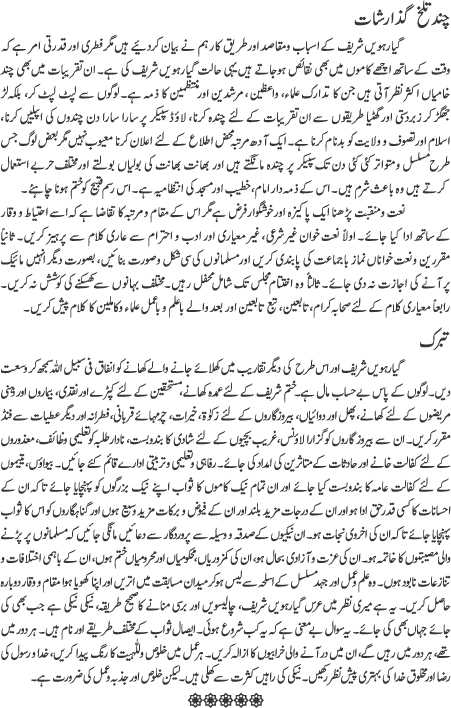 چند تلخ گذارشات
گیارہویں شریف کے اسباب و مقاصد اور طریق کار ہم نے بیان کر دیئے ہیں مگر فطری اور قدرتی امر ہے کہ
وقت کے ساتھ اچھے کاموں میں بھی نقائص ہو جاتے ہیں یہی حالت گیارہویں شریف کی ہے۔ ان تقریبات میں بھی چند
خامیاں اکثر نظر آتی ہیں جن کا تدارک علماء، واعظین، مرشدین اور منتظمین کا ذمہ ہے۔ لوگوں سے لپٹ لپٹ کر، بلکہ لڑ
جھگڑ کر زبردستی اور گھٹیا طریقوں سے ان تقریبات کے لئے چندہ کرنا، لاؤڈ سپیکر پر سارا سارا دن چندوں کی اپیلیں کرنا،
اسلام اور تصوف و ولایت کو بدنام کرنا ہے۔ ایک آدھ مرتبہ محض اطلاع کے لئے اعلان کرنا معیوب نہیں مگر بعض لوگ جس
طرح مسلسل و متواتر کئی کئی دن تک سپیکر پر چندہ مانگتے ہیں اور بھانت بھانت کی بولیاں بولتے اور مختلف حربے استعمال
کرتے ہیں وہ باعث شرم ہیں۔ اس کے ذمہ دار امام، خطیب اور مسجد کی انتظامیہ ہے۔ اس رسم قبیح کو ختم ہونا چاہئے۔
نعت و منقبت پڑھنا ایک پاکیزہ اور خوشگوار فرض ہے مگر اس کے مقام و مرتبہ کا تقاضا ہے کہ اسے احتیاط و وقار
کے ساتھ ادا کیا جائے۔ اولاً نعت خوان غیر شرعی، غیر معیاری اور ادب و احترام سے عاری کلام سے پرہیز کریں۔ ثانیاً
مقررین و نعت خواں نماز باجماعت کی پابندی کریں اور مسلمانوں کی سی شکل و صورت بنائیں، بصورت دیگر انہیں مائیک
پر آنے کی اجازت نہ دی جائے۔ ثالثاً وہ اختتام مجلس تک شامل محفل رہیں۔ مختلف بہانوں سے کھسکنے کی کوشش نہ کریں۔
رابعاً معیاری کلام کے لئے صحابہ کرام، تابعین، تبع تابعین، اور بعد والے باعلم و باعمل علماء و کاملین کا کلام پیش کریں۔
تبرک
گیارہویں شریف اور اس طرح کی دیگر تقاریب میں کھلائے جانے والے کھانے کو انفاق فی سبیل اللہ سمجھ کر وسعت
دیں۔ لوگوں کے پاس بے حساب مال ہے۔ ختم شریف کے لئے عمدہ کھانے، مستحقین کے لئے کپڑے اور نقدی، بیماروں اور ذہنی
مریضوں کے لئے کھانے، پھل اور دوائیاں، بیروزگاروں کے لئے زکوٰۃ، خیرات، چرمہائے قربانی، فطرانہ اور دیگر عطیات سے فنڈ
مقرر کریں۔ ان سے بیروزگاروں کو گزارا لاؤنس، غریب بچیوں کے لئے شادی کا بندوبست، نادار طلبہ کو تعلیمی وظائف، معذوروں
کے لئے کفالت خانے اور حادثات کے متاثرین کی امداد کی جائے۔ رفاہی و تعلیمی و تربیتی ادارے قائم کئے جائیں۔ بیواؤں، یتیموں
کے لئے کفالت عامہ کا بندوبست کیا جائے اور ان تمام نیک کاموں کا ثواب اپنے نیک بزرگوں کو پہنچایا جائے تاکہ ان کے
احسانات کا کسی قدر حق ادا ہو اور ان کے درجات مزید بلند اور ان کے فیوض و برکات مزید وسیع ہوں اور گناہگاروں کو اس کا ثواب
پہنچایا جائے تاکہ ان کی اخروی نجات ہو۔ ان نیکیوں کے صدقہ و وسیلہ سے پروردگار سے دعائیں مانگی جائیں کہ مسلمانوں پر پڑنے
والی مصیبتوں کا خاتمہ ہو۔ ان کی عزت و آزادی بحال ہو، ان کی کمزوریاں، محکومیاں اور محرومیاں ختم ہوں، ان کے باہمی اختلافات و
تنازعات نابود ہوں۔ وہ علم و عمل اور جہد مسلسل کے اسلحہ سے لیس ہو کر میدان مسابقت میں اتریں اور اپنا کھویا ہوا مقام و وقار دوبارہ
حاصل کریں۔ یہ ہے میری نظر میں عرس گیارہویں شریف، چالیسویں اور برسی منانے کا صحیح طریقہ، نیکی نیکی ہے جب بھی کی
جائے جہاں بھی کی جائے۔ یہ سوال بے معنی ہے کہ یہ کب شروع ہوئی۔ ایصال ثواب کے مختلف طریقے اور نام ہیں۔ ہر دور میں
تھے، ہر دور میں رہیں گے، ان میں در آنے والی خرابیوں کا ازالہ کریں۔ ہر عمل میں خلوص و للہیت کا رنگ پیدا کریں، خدا و رسول کی
رضا اور مخلوق خدا کی بہتری پیش نظر رکھیں۔ نیکی کی راہیں کثرت سے کھلی ہیں۔ لیکن خلوص اور جذبہ و عمل کی ضرورت ہے۔